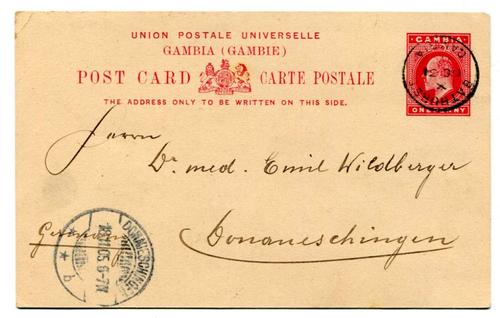 UNION POSTALE UNIVERSELLE
GAMBIA (GAMBIE)
POST CARD CARTE POSTALE
THE ADDRESS ONLY TO BE WRITTEN ON THIS SIDE.
GAMBIA
ONE PENNY
GAMBIA
BATHURST
Herrn
Dr. med. Emil Wildberger
Germany
Donaueschingen
DONAUESCHINGEN
05.6-7N
b